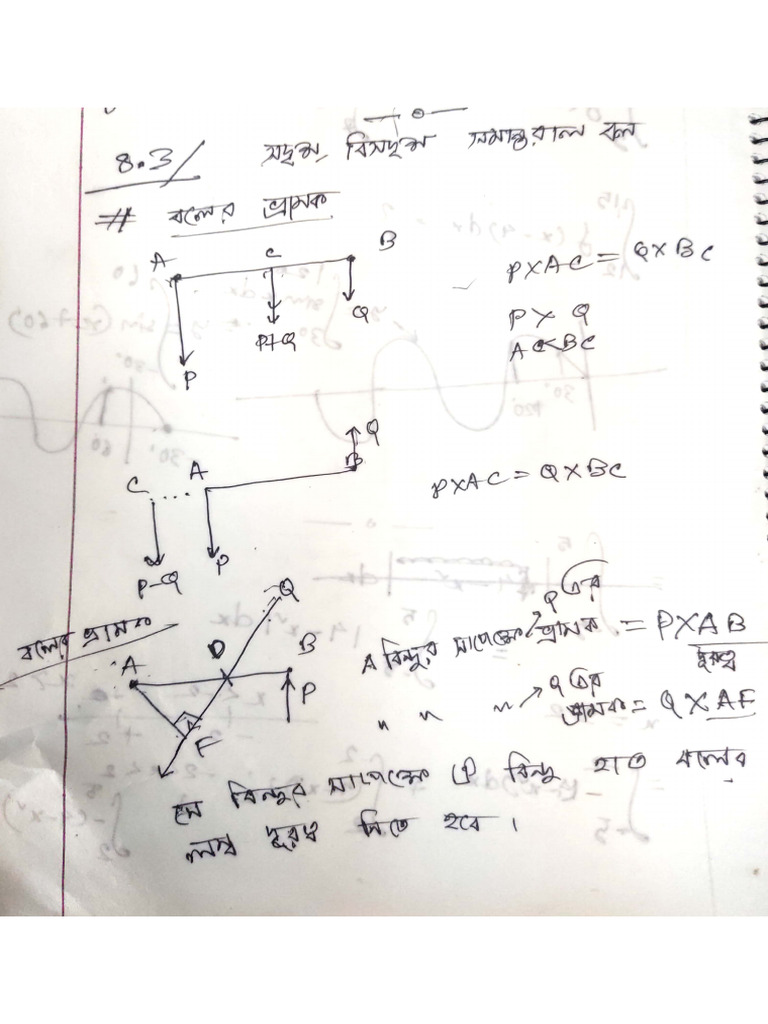 8.3/ সদৃশ, বিসদৃশ সমান্তরাল বল
# বলের ভ্রামক
A C B
P×AC = Q×BC
P > Q
AC<BC
Q
P+Q
P
Q
B
C .... A
P×AC = Q×BC
P
P-Q
Q
বলের ভ্রামক
P এর
A বিন্দুর সাপেক্ষে ভ্রামক = P×AB
দূরত্ব
D B
A
P
" " " → Q এর
ভ্রামক = Q×AF
F
যে বিন্দুর সাপেক্ষে বিন্দু হতে বলের
লম্ব দূরত্ব নিতে হবে ।